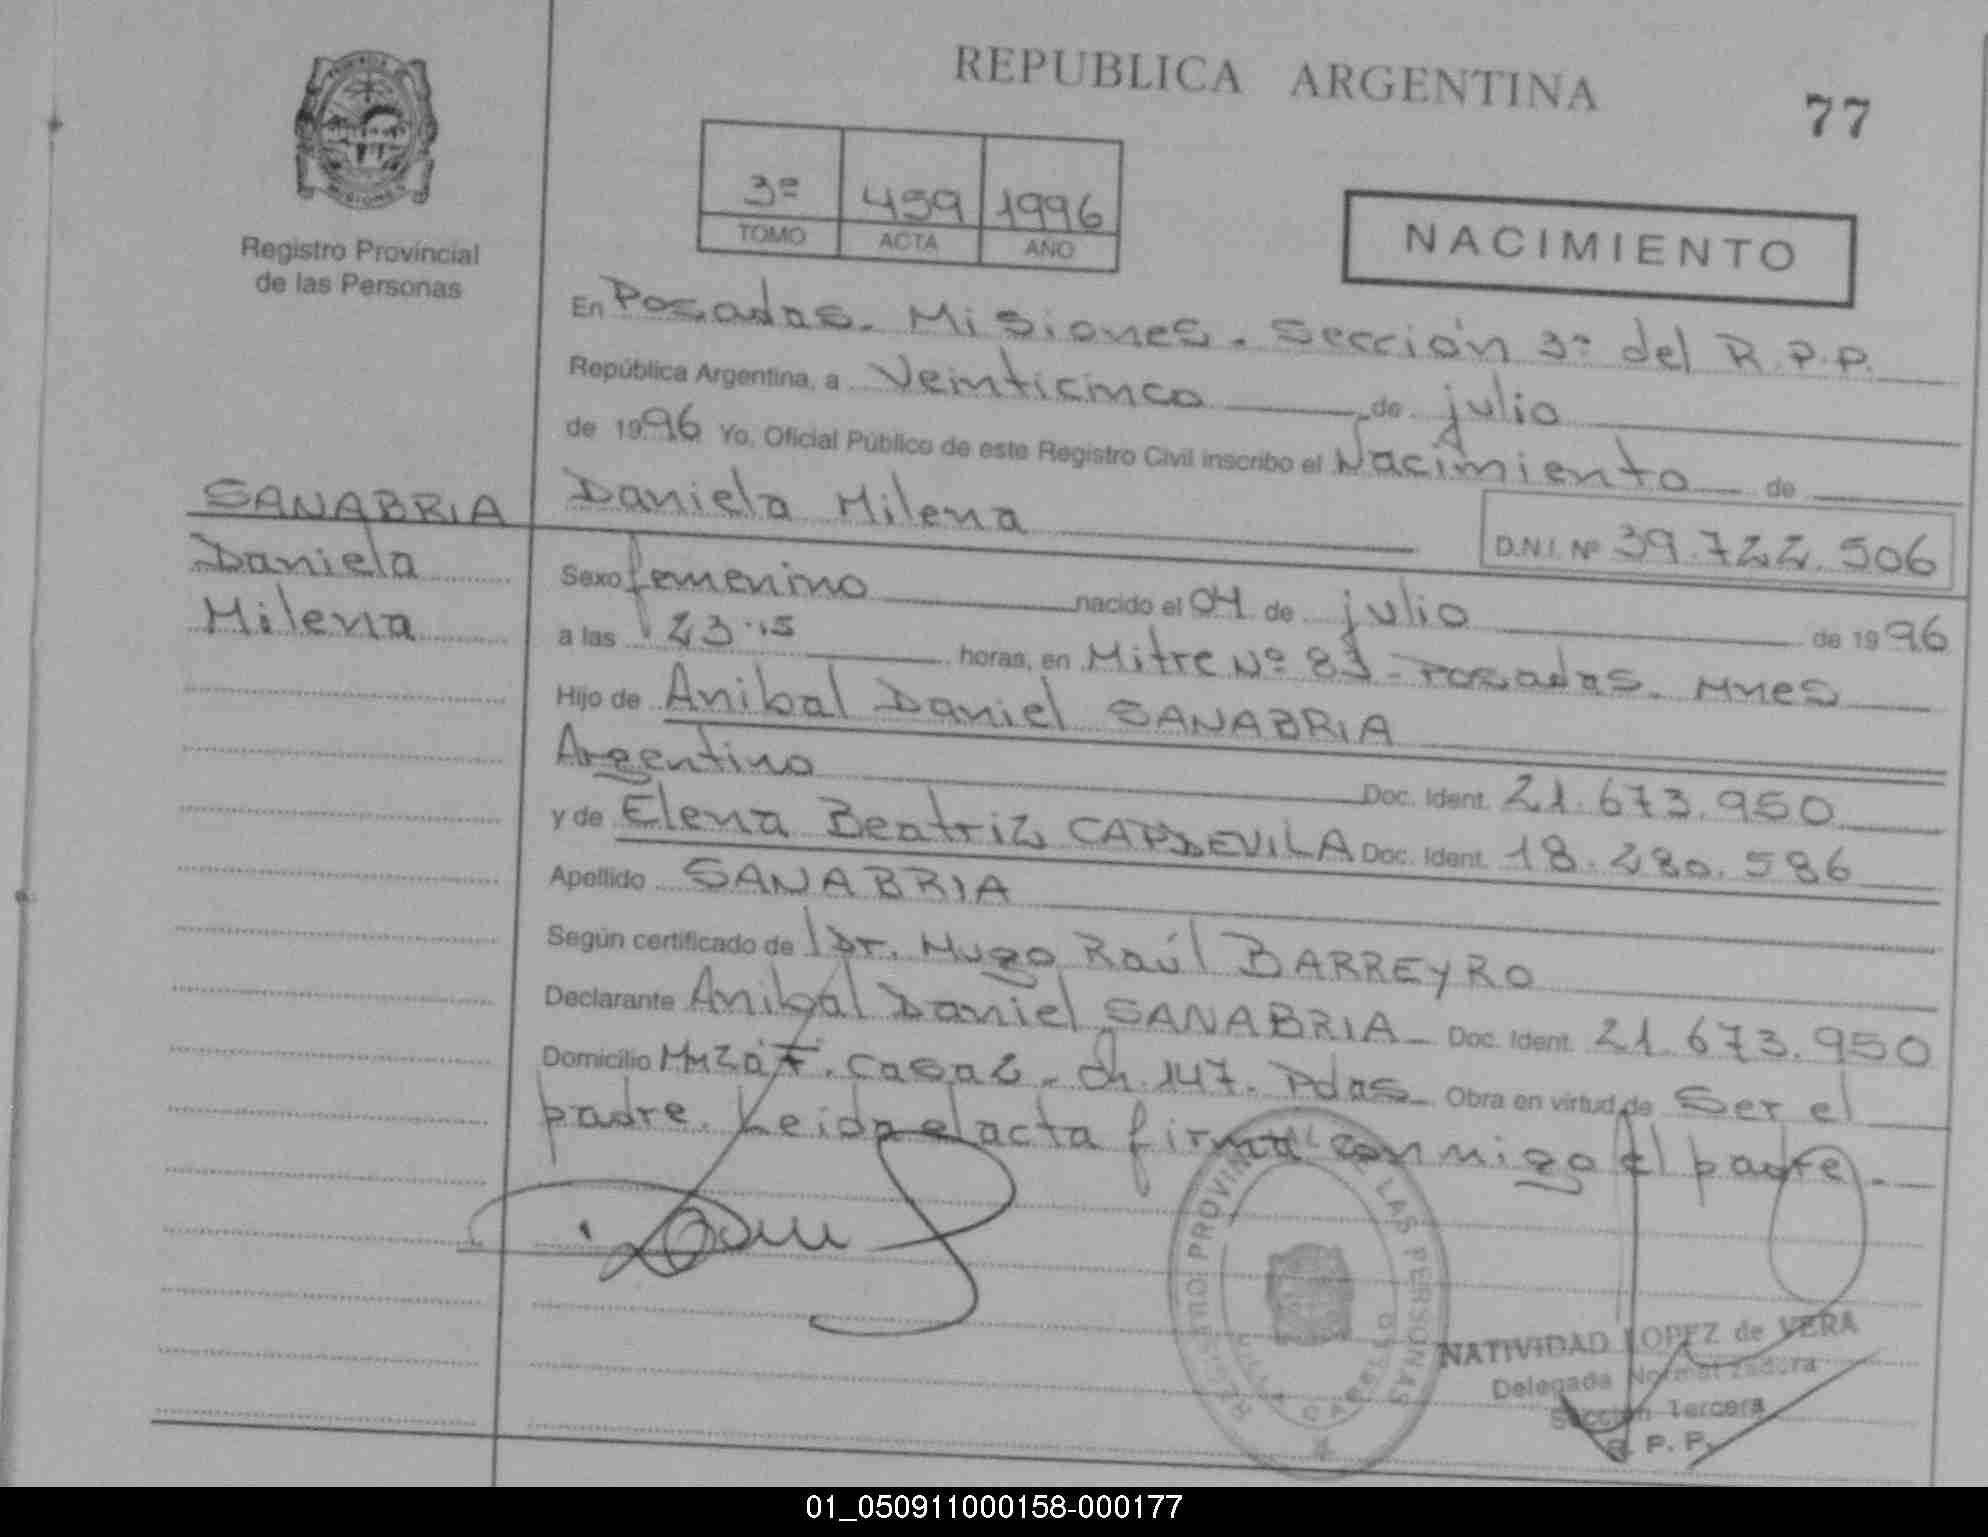 REPUBLICA ARGENTINA
77
Registro Provincial
de las Personas
3º 459 1996
TOMO ACTA AÑO
NACIMIENTO
En Posadas. Misiones. Sección 3ª del R.P.P.
República Argentina, a Veinticinco de julio
de 1996 Yo, Oficial Público de este Registro Civil inscribo el Nacimiento de
SANABRIA
Daniela
Milena
Daniela Milena
D.N.I. Nº 39.722.506
Sexo femenino nacido el 04 de julio de 1996
a las 23.15 horas, en Mitre Nº 83 - Posadas. Mnes
Hijo de Anibal Daniel SANABRIA
Argentino Doc. Ident. 21.673.950
y de Elena Beatriz CAPDEVILA Doc. Ident. 18.280.586
Apellido SANABRIA
Según certificado de Dr. Hugo Raúl BARREYRO
Declarante Anibal Daniel SANABRIA - Doc. Ident. 21.673.950
Domicilio Mnza 7. Casa 2. Ch. 147. Pdas. Obra en virtud de Ser el
padre. Leida el acta firma conmigo el padre.-
REGISTRO PROVINCIAL DE LAS PERSONAS
VILLA CABELLO
NATIVIDAD LOPEZ de VERA
Delegada Normalizadora
Sección Tercera
R. P. P.
01_050911000158-000177